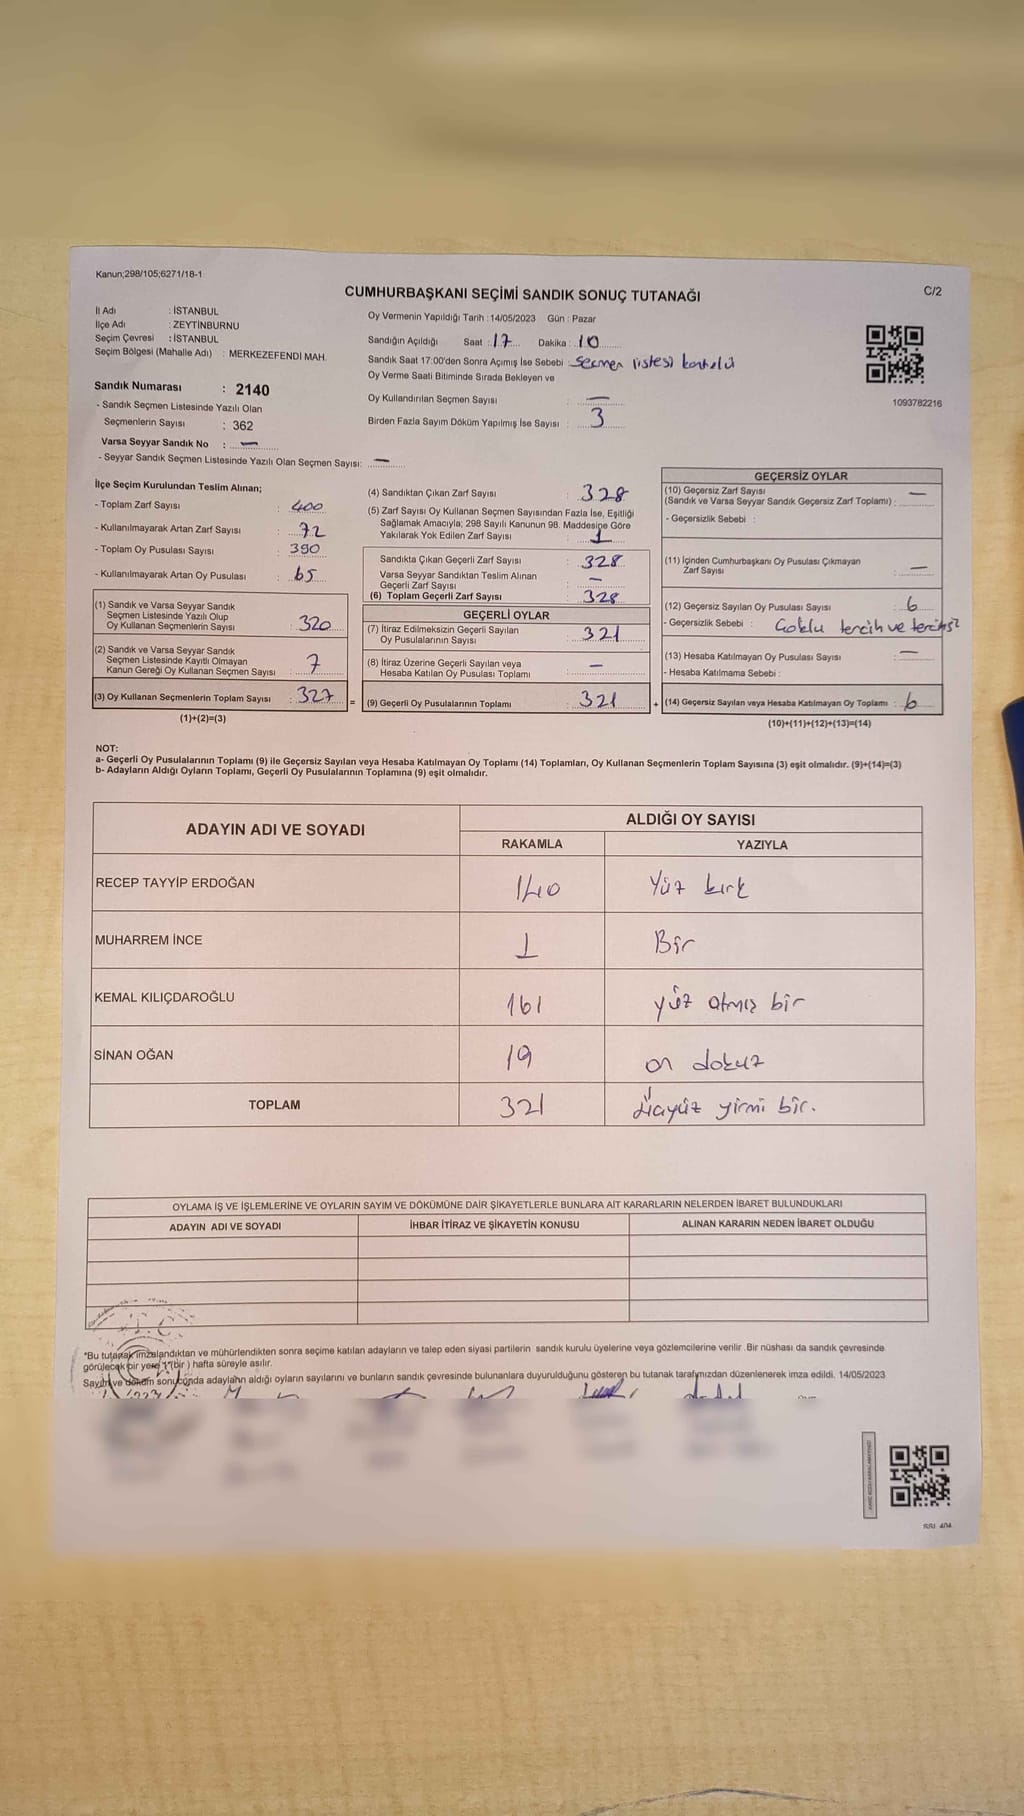 Kanun;298/105;6271/18-1
C/2
CUMHURBAŞKANI SEÇİMİ SANDIK SONUÇ TUTANAĞI
İl Adı : İSTANBUL
İlçe Adı : ZEYTİNBURNU
Seçim Çevresi : İSTANBUL
Seçim Bölgesi (Mahalle Adı) : MERKEZEFENDİ MAH.
Sandık Numarası : 2140
- Sandık Seçmen Listesinde Yazılı Olan
Seçmenlerin Sayısı : 362
Varsa Seyyar Sandık No : —
- Seyyar Sandık Seçmen Listesinde Yazılı Olan Seçmen Sayısı: —
Oy Vermenin Yapıldığı Tarih : 14/05/2023 Gün : Pazar
Sandığın Açıldığı Saat : 17 Dakika : 10
Sandık Saat 17:00'den Sonra Açımış İse Sebebi : Seçmen listesi kontrolü
Oy Verme Saati Bitiminde Sırada Bekleyen ve
Oy Kullandırılan Seçmen Sayısı : —
Birden Fazla Sayım Döküm Yapılmış İse Sayısı : 3
1093782216
İlçe Seçim Kurulundan Teslim Alınan;
- Toplam Zarf Sayısı : 400
- Kullanılmayarak Artan Zarf Sayısı : 72
- Toplam Oy Pusulası Sayısı : 390
- Kullanılmayarak Artan Oy Pusulası : 65
(1) Sandık ve Varsa Seyyar Sandık
Seçmen Listesinde Yazılı Olup
Oy Kullanan Seçmenlerin Sayısı : 320
(2) Sandık ve Varsa Seyyar Sandık
Seçmen Listesinde Kayıtlı Olmayan
Kanun Gereği Oy Kullanan Seçmen Sayısı : 7
(3) Oy Kullanan Seçmenlerin Toplam Sayısı : 327 =
(1)+(2)=(3)
(4) Sandıktan Çıkan Zarf Sayısı : 328
(5) Zarf Sayısı Oy Kullanan Seçmen Sayısından Fazla İse, Eşitliği
Sağlamak Amacıyla; 298 Sayılı Kanunun 98. Maddesine Göre
Yakılarak Yok Edilen Zarf Sayısı : 1
Sandıkta Çıkan Geçerli Zarf Sayısı : 328
Varsa Seyyar Sandıktan Teslim Alınan
Geçerli Zarf Sayısı : —
(6) Toplam Geçerli Zarf Sayısı : 328
GEÇERLİ OYLAR
(7) İtiraz Edilmeksizin Geçerli Sayılan
Oy Pusulalarının Sayısı : 321
(8) İtiraz Üzerine Geçerli Sayılan veya
Hesaba Katılan Oy Pusulası Toplamı : —
(9) Geçerli Oy Pusulalarının Toplamı : 321 +
GEÇERSİZ OYLAR
(10) Geçersiz Zarf Sayısı
(Sandık ve Varsa Seyyar Sandık Geçersiz Zarf Toplamı) : —
- Geçersizlik Sebebi :
(11) İçinden Cumhurbaşkanı Oy Pusulası Çıkmayan
Zarf Sayısı : —
(12) Geçersiz Sayılan Oy Pusulası Sayısı : 6
- Geçersizlik Sebebi : Çoklu tercih ve
(13) Hesaba Katılmayan Oy Pusulası Sayısı : —
- Hesaba Katılmama Sebebi :
(14) Geçersiz Sayılan veya Hesaba Katılmayan Oy Toplamı : 6
(10)+(11)+(12)+(13)=(14)
NOT:
a- Geçerli Oy Pusulalarının Toplamı (9) ile Geçersiz Sayılan veya Hesaba Katılmayan Oy Toplamı (14) Toplamları, Oy Kullanan Seçmenlerin Toplam Sayısına (3) eşit olmalıdır. (9)+(14)=(3)
b- Adayların Aldığı Oyların Toplamı, Geçerli Oy Pusulalarının Toplamına (9) eşit olmalıdır.
ADAYIN ADI VE SOYADI ALDIĞI OY SAYISI
RAKAMLA YAZIYLA
RECEP TAYYİP ERDOĞAN 140 Yüz kırk
MUHARREM İNCE 1 Bir
KEMAL KILIÇDAROĞLU 161 yüz atmış bir
SİNAN OĞAN 19 on dokuz
TOPLAM 321 üçyüz yirmi bir.
OYLAMA İŞ VE İŞLEMLERİNE VE OYLARIN SAYIM VE DÖKÜMÜNE DAİR ŞİKAYETLERLE BUNLARA AİT KARARLARIN NELERDEN İBARET BULUNDUKLARI
ADAYIN ADI VE SOYADI İHBAR İTİRAZ VE ŞİKAYETİN KONUSU ALINAN KARARIN NEDEN İBARET OLDUĞU
*Bu tutanak imzalandıktan ve mühürlendikten sonra seçime katılan adayların ve talep eden siyasi partilerin sandık kurulu üyelerine veya gözlemcilerine verilir .Bir nüshası da sandık çevresinde
görülecek bir yere 1 (bir ) hafta süreyle asılır.
Sayım ve döküm sonucunda adayların aldığı oyların sayılarını ve bunların sandık çevresinde bulunanlara duyurulduğunu gösteren bu tutanak tarafımızdan düzenlenerek imza edildi. 14/05/2023